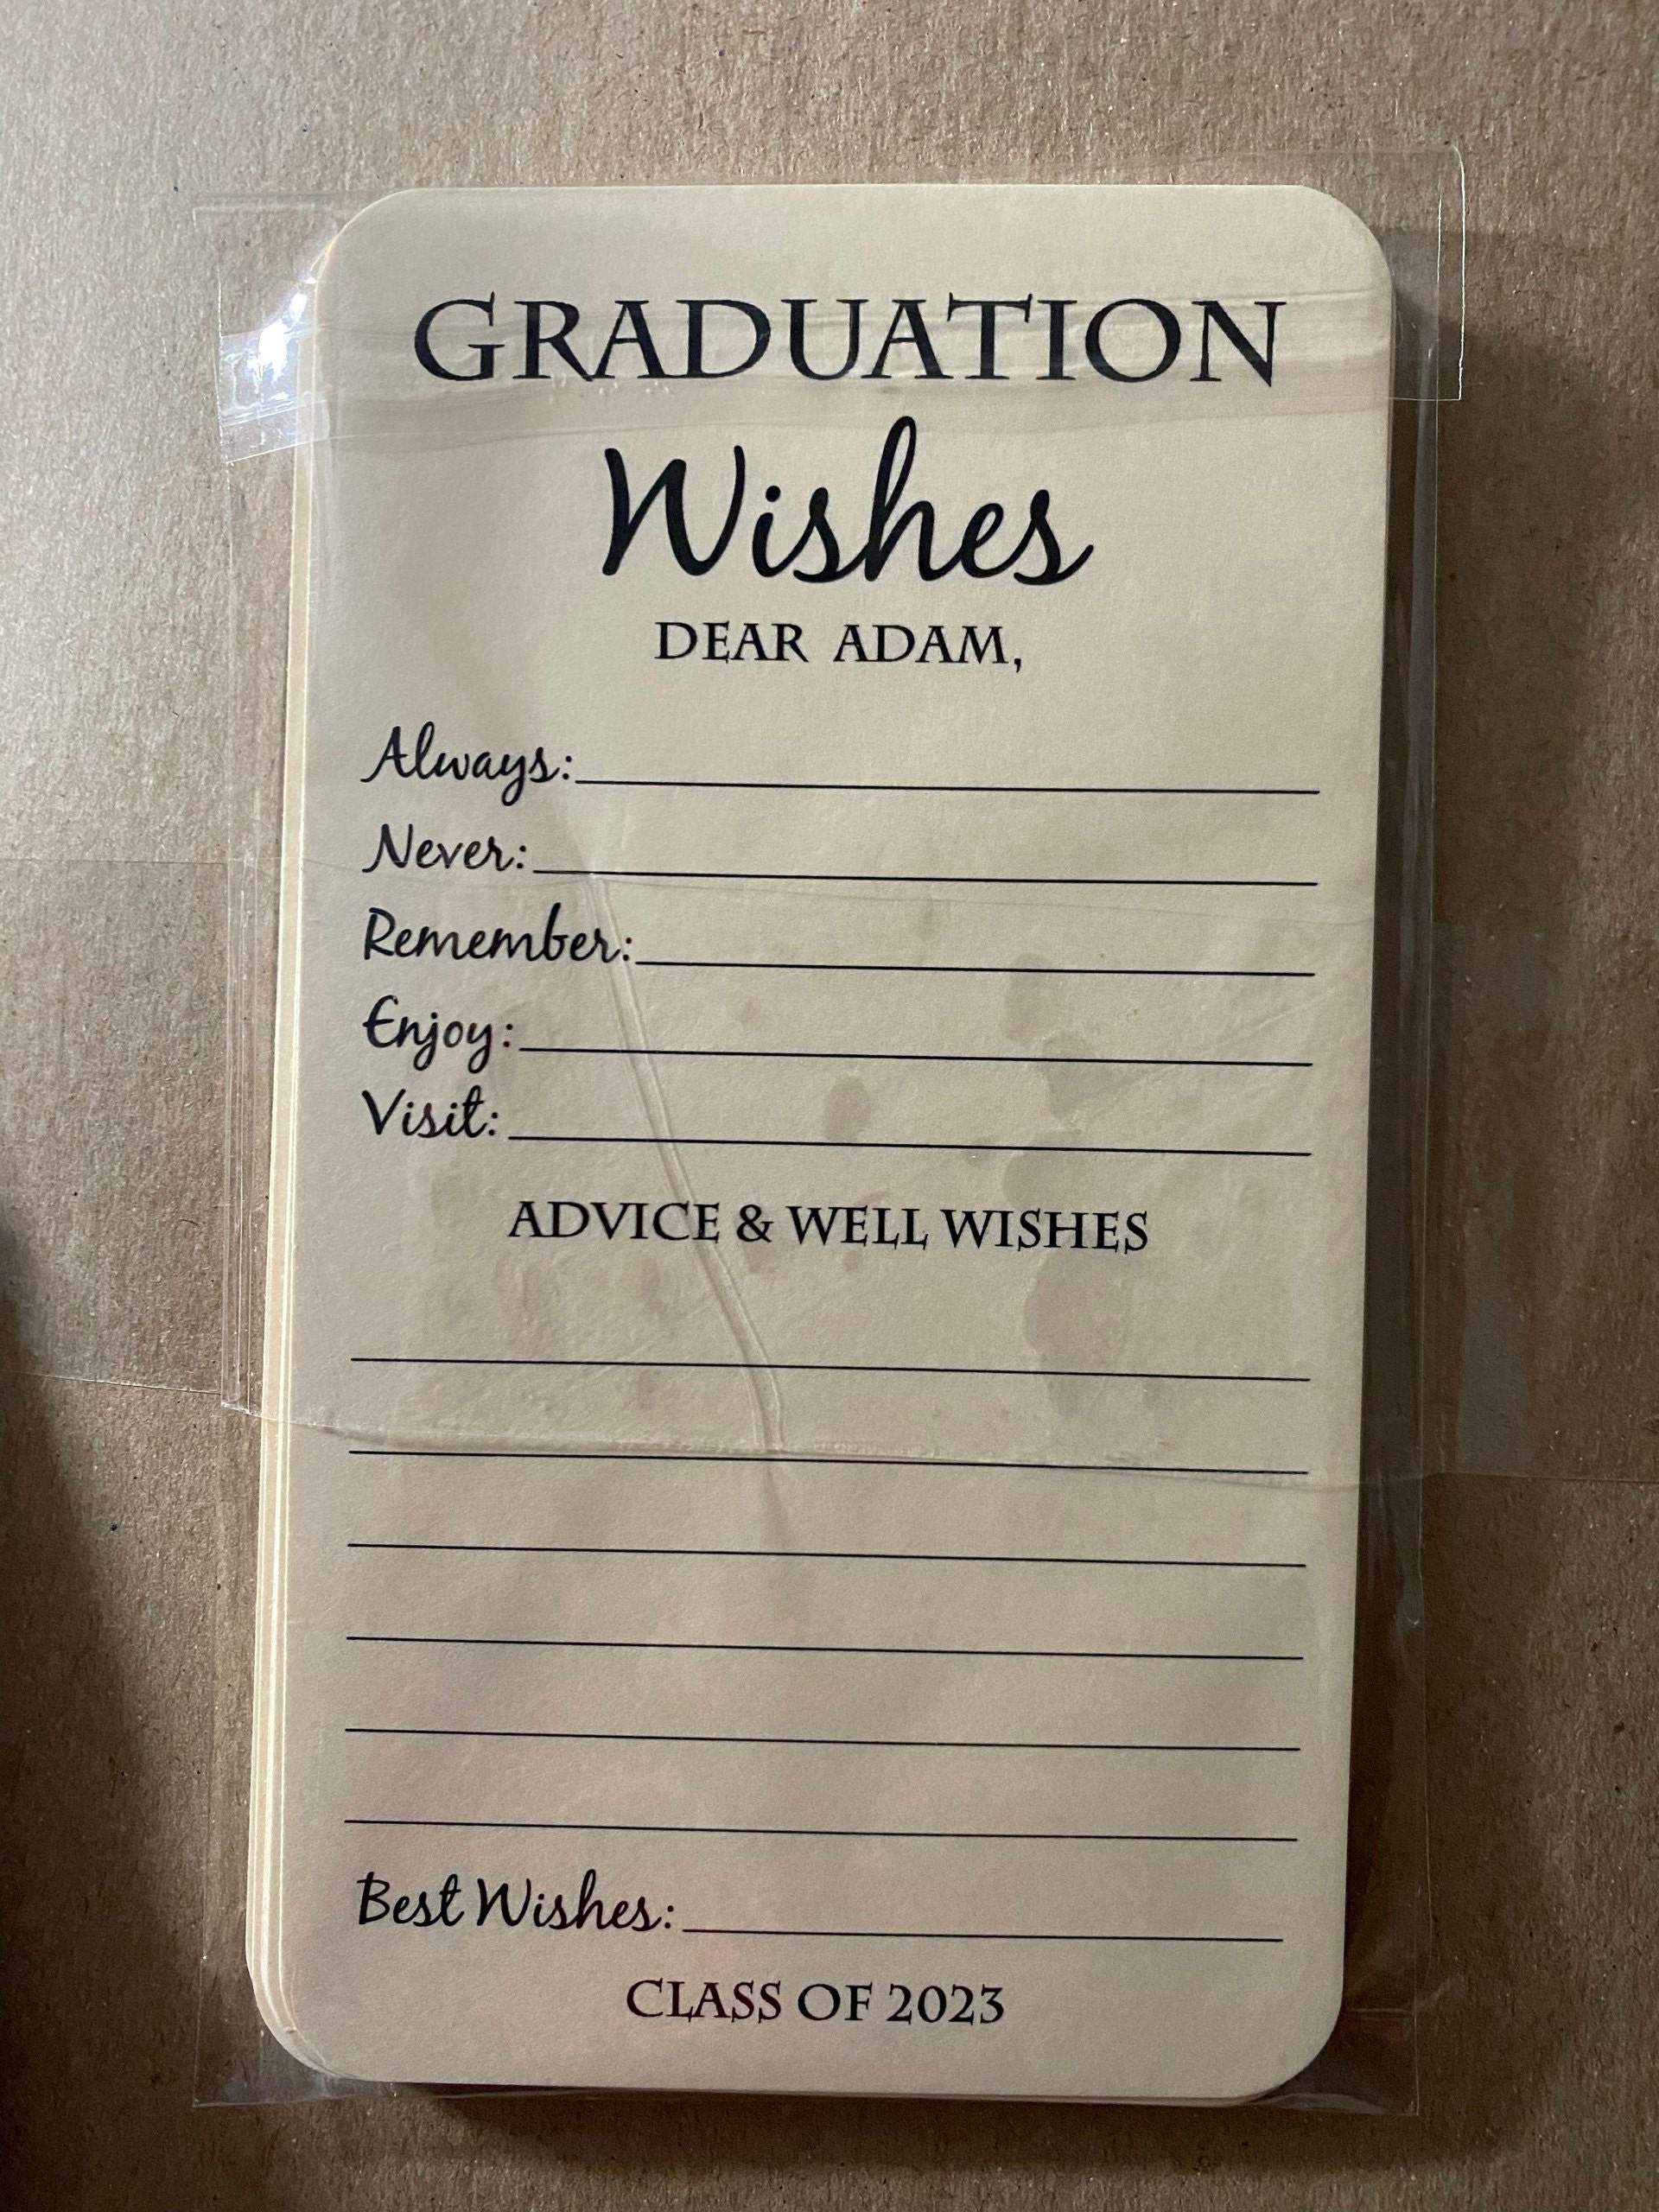 GRADUATION
Wishes
DEAR ADAM,
Always:
Never:
Remember:
Enjoy:
Visit:
ADVICE & WELL WISHES
Best Wishes:
CLASS OF 2023